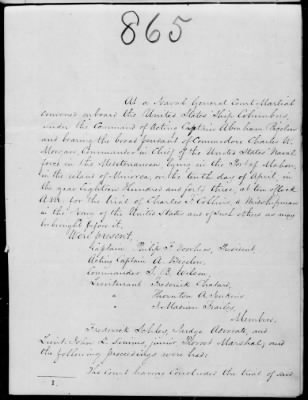 865
At a Naval General Court Martial
convened onboard the United States Ship Columbus,
under the Command of Acting Captain Abraham Bigelow
and bearing the broad pennant of Commodore Charles W.
Morgan, Commander in Chief of the United States Naval
force in the Mediterranean, lying in the Port of Mahon,
in the island of Minorca, on the tenth day of April, in
the year Eighteen Hundred and forty three, at ten o'Clock
A.M. for the trial of Charles F. Collins, a Midshipman
in the Navy of the United States and of such others as may
be brought before it.
Were present,
Captain Philip F. Voorhees, President,
Acting Captain A. Bigelow,
Commander B. Wilson,
Lieutenant Frederick Chatard,
" Thornton A. Jenkins
"
Members,
Frederick Judge Advocate, and
Lieut. John L. junior, Provost Marshal, and
the following proceedings were had:
The Court having Concluded the trial of said
1.